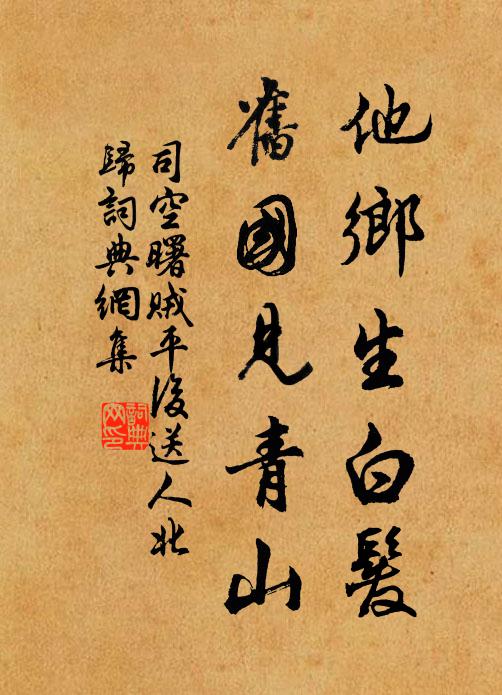 他鄉生白髮
舊國見青山
司空曙賊平後送人北
歸詞典網集
詞典
网印